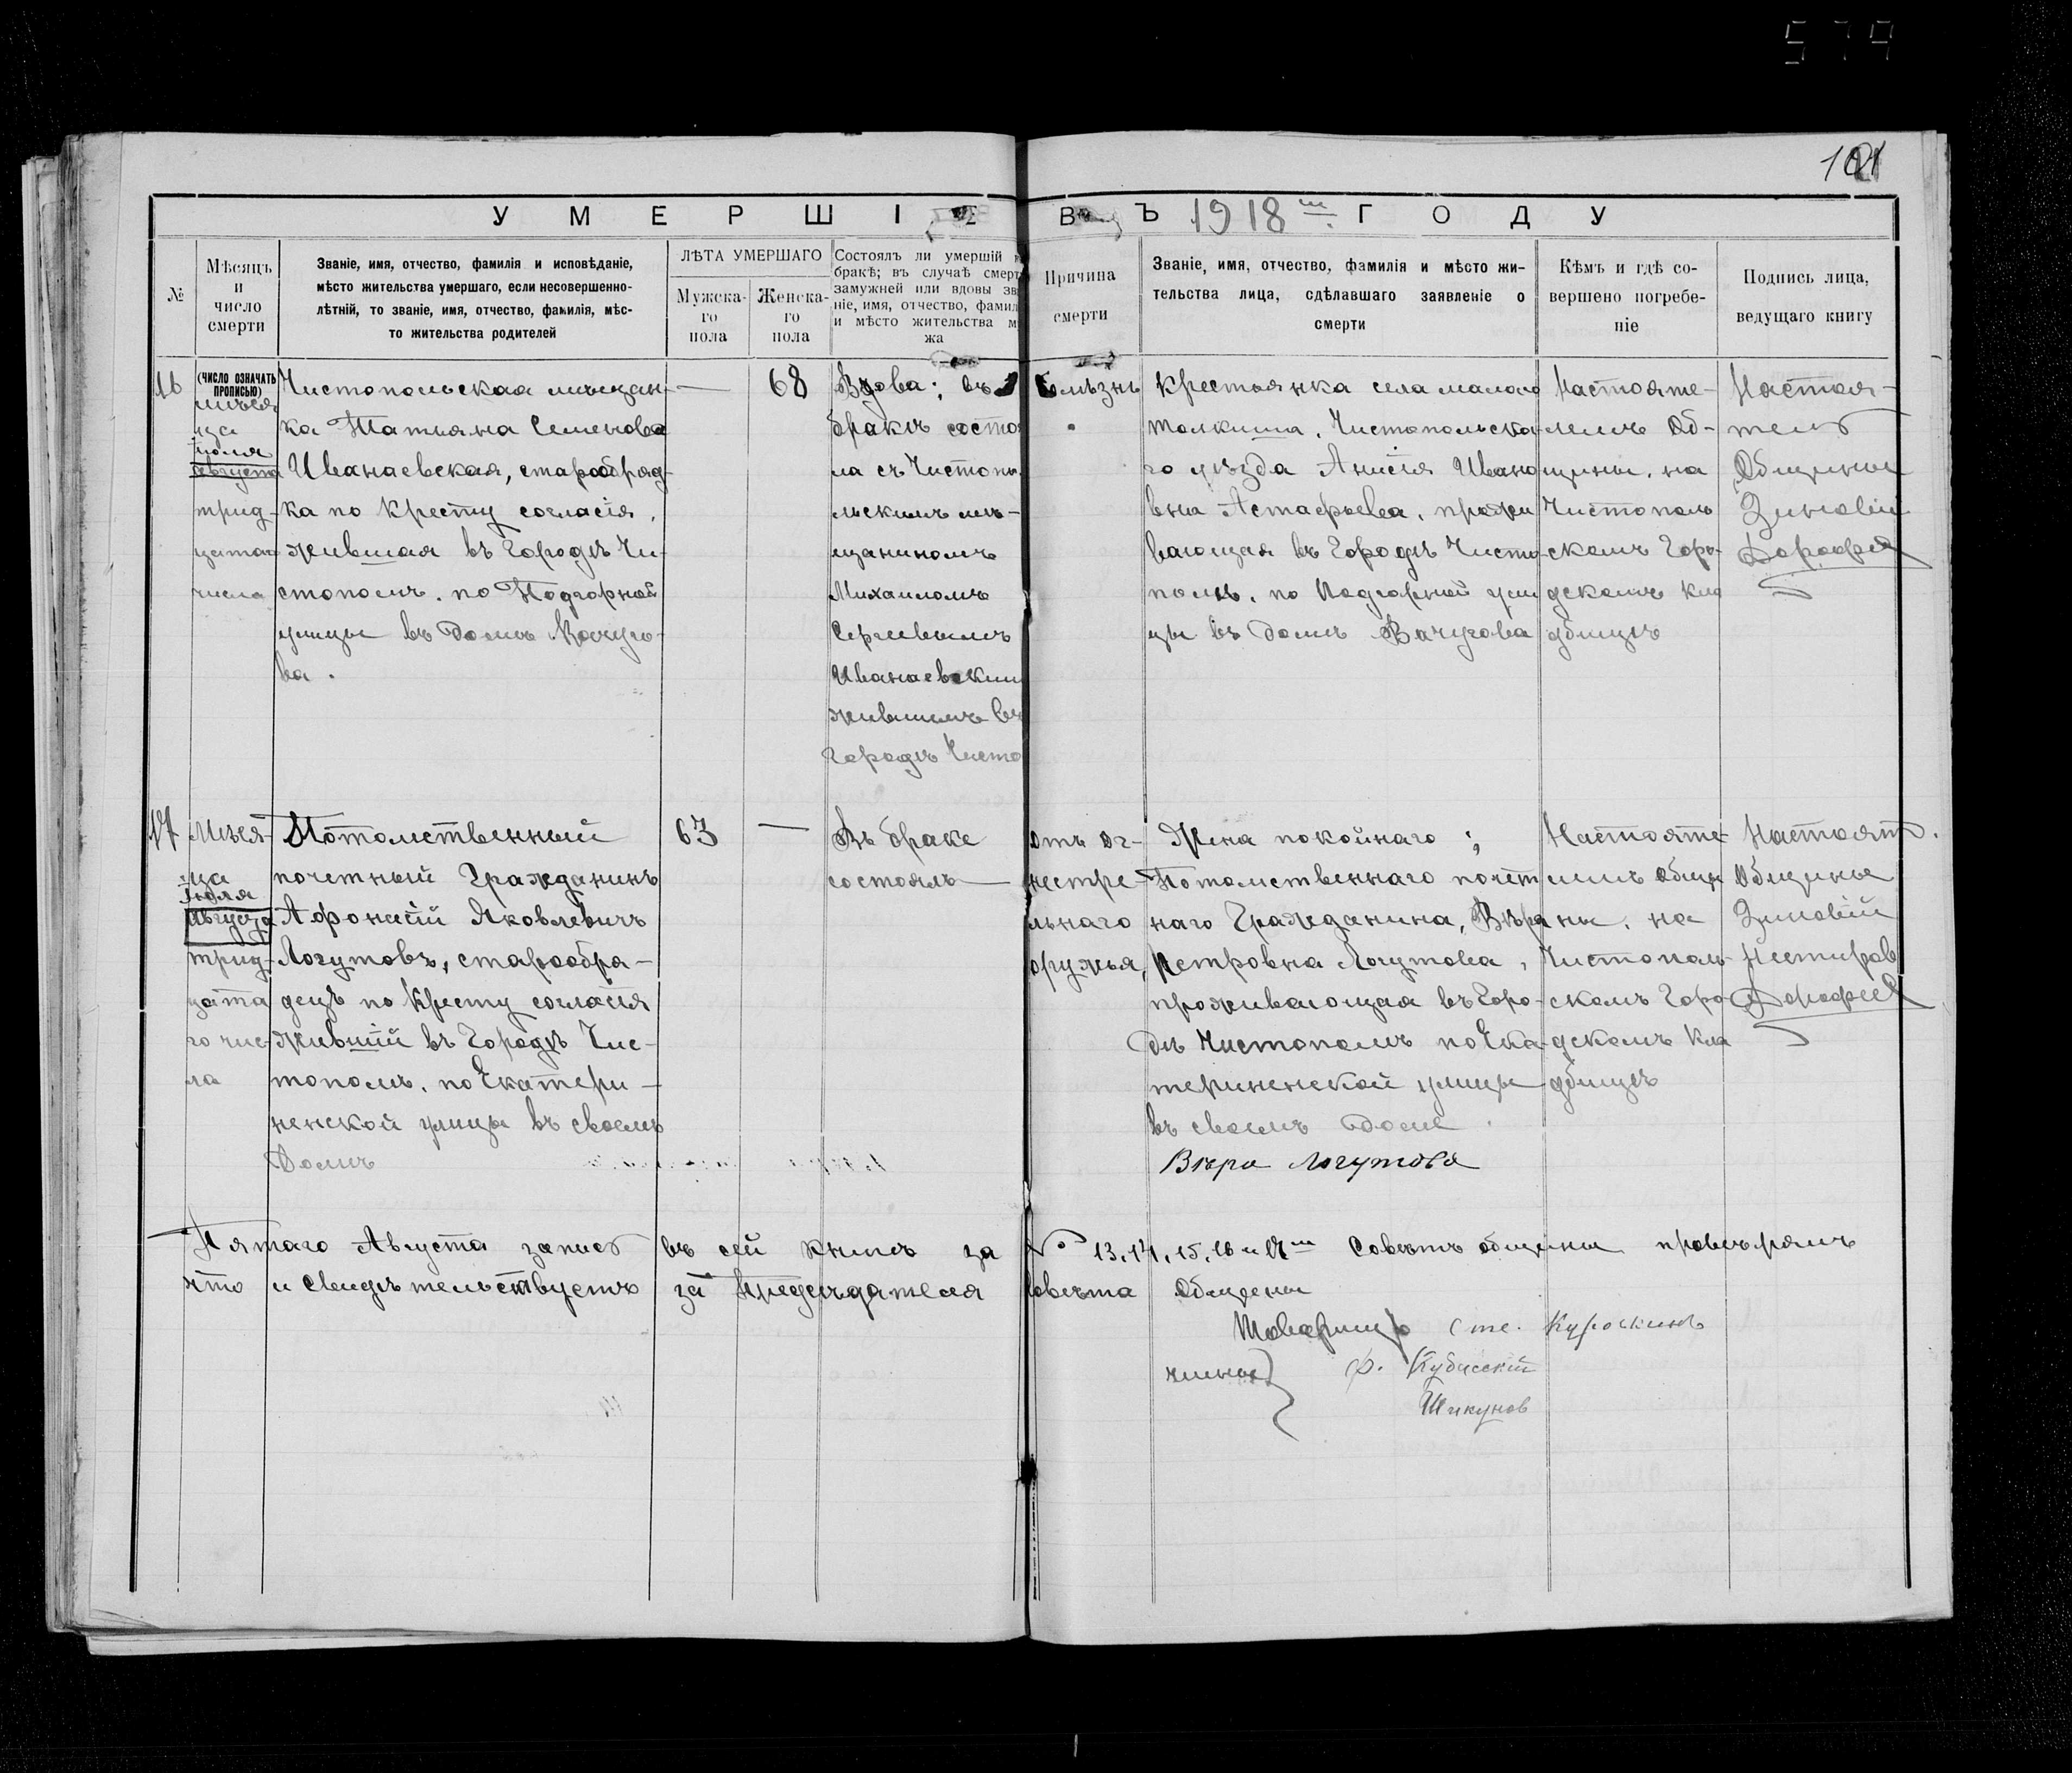 579
101
УМЕРШІЕ ВЪ 1918 ГОДУ
№
Мѣсяцъ
и
число
смерти
Званіе, имя, отчество, фамилія и исповѣданіе,
мѣсто жительства умершаго, если несовершенно-
лѣтній, то званіе, имя, отчество, фамилія, мѣс-
то жительства родителей
ЛѢТА УМЕРШАГО
Мужска-
го
пола
Женска-
го
пола
Состоялъ ли умершій
бракѣ; въ случаѣ смерт
замужней или вдовы зв
ніе, имя, отчество, фамил
и мѣсто жительства м
жа
Причина
смерти
Званіе, имя, отчество, фамилія и мѣсто жи-
тельства лица, сдѣлавшаго заявленіе о
смерти
Кѣмъ и гдѣ со-
вершено погребе-
ніе
Подпись лица,
ведущаго книгу
16
(ЧИСЛО ОЗНАЧАТЬ
ПРОПИСЬЮ)
мѣся
ца
июля
августа
трид-
цатаго
числа
Чистопольская мѣщан-
ка Татьяна Семенова
Иванаевская, старообряд-
ка по Кресту согласія,
жившая въ Городѣ Чи-
стополѣ. по Подгорной
улицы въ Домѣ Вачуго-
ва.
—
68
Вдова; въ
бракѣ состоя
ла съ Чистопо
льскимъ мѣ-
щаниномъ
Михаиломъ
Сергѣевымъ
Иванаевским
жившимъ въ
Городѣ Чисто
болѣзнь
Крестьянка села малаго
Толкиша. Чистопольска-
го уѣзда Анисія Ивано
вна Астафьева, прожи
вающая въ Городѣ Чисто
полѣ. по Подгорной ули
цы въ Домѣ Вачугова
Настояте-
лемъ Об-
щины. на
Чистополь
скомъ Горо-
дскомъ кла
дбищѣ
Настоя-
тель
Общины
Зиновій
Дорофеев
17
Мѣся-
ца
Июля
Августа
трид-
цата
го чис-
ла
Потомственный
почетный Гражданинъ
Афонасій Яковлевичъ
Логутовъ, старообря-
децъ по Кресту согласія
живший въ Городѣ Чис-
тополѣ. по Екатери-
ненской улицы въ своемъ
Домѣ
63
—
Въ браке
состоялъ
отъ ог-
нестре-
льнаго
оружья,
Жена покойнаго;
Потомственнаго почёт
наго Гражданина, Вѣра
Петровна Логутова,
проживающая въ Горо-
дѣ Чистополѣ по Ека-
териненской улицы
въ своемъ доме.
Вѣра Логутова
Настояте-
лемъ Общи
ны. на
Чистополь-
скомъ Горо-
дскомъ Кла
дбищѣ
Настоят.
Общины
Зиновій
Нестиров
Дорофеев
Пятаго Августа запись въ сей книгѣ за № 13, 14, 15, 16 и 17 Совѣтъ общины провѣрялъ
что и свидѣтельствуетъ за Председателя Совѣта Общины
Товарищъ Сте. Курочкинъ
члены Ф. Кубасскій
Шикунов